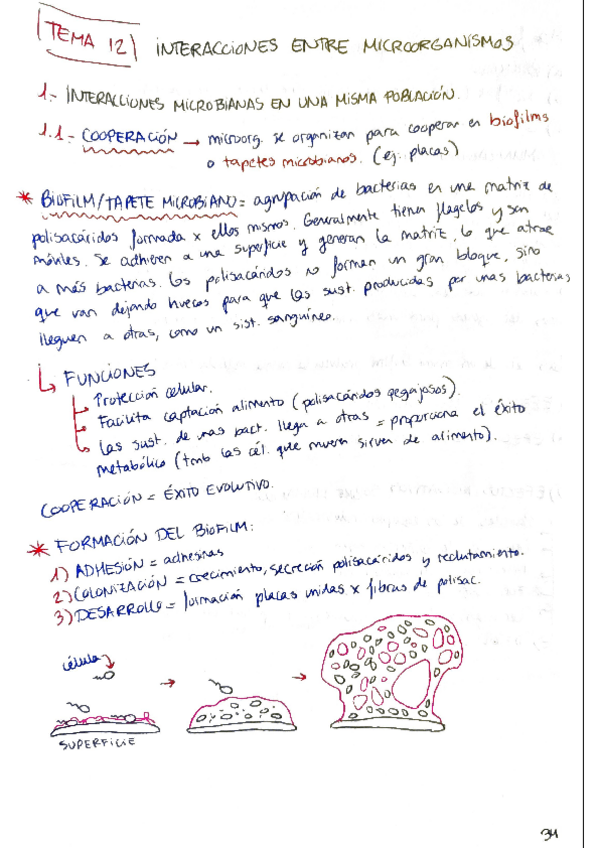 TEMA 12 INTERACCIONES ENTRE MICROORGANISMOS
1.- INTERACCIONES MICROBIANAS EN UNA MISMA POBLACIÓN.
1.1- COOPERACIÓN → microorg. se organizan para cooperar en biofilms
o tapetes microbianos. (ej. placas)
* BIOFILM/TAPETE MICROBIANO = agrupación de bacterias en una matriz de
polisacáridos formada x ellos mismos. Generalmente tienen flagelos y son
móviles. Se adhieren a una superficie y generan la matriz, lo que atrae
a más bacterias. Los polisacáridos no forman un gran bloque, sino
que van dejando huecos para que las sust. producidas por unas bacterias
lleguen a otras, como un sist. sanguíneo.
↳ FUNCIONES
Protección celular.
Facilita captación alimento (polisacáridos pegajosos).
Las sust. de unas bact. llega a otras = proporciona el éxito
metabólico (tmb las cél. que mueren sirven de alimento).
COOPERACIÓN = ÉXITO EVOLUTIVO.
* FORMACIÓN DEL BIOFILM:
1) ADHESIÓN = adhesinas
2) COLONIZACIÓN = crecimiento, secreción polisacáridos y reclutamiento.
3) DESARROLLO = formación placas unidas x fibras de polisac.
célula
SUPERFICIE
34